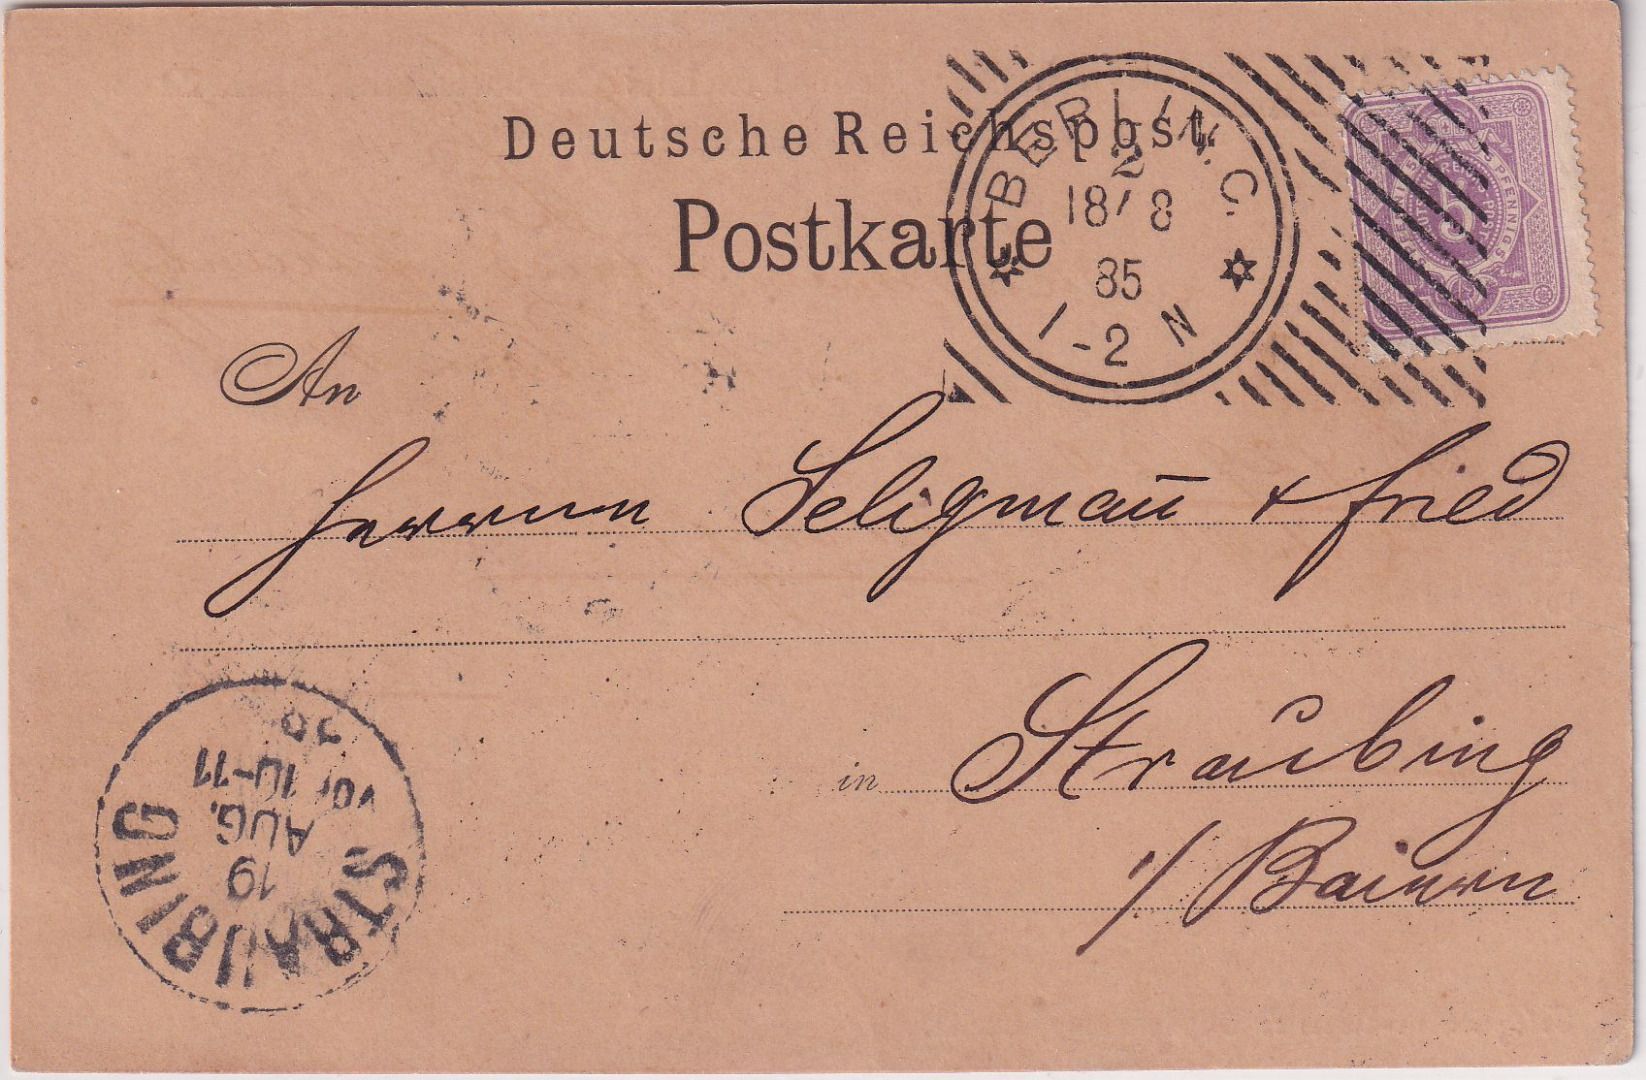 Deutsche Reichspost
Postkarte
BERLIN. C.
2
18/8
85
1-2 N
5 PFENNIG 5
An
Herren Seligman̄ & Fried
in Straubing
i/ Baiern
STRAUBING
19
AUG.
VOR 10-11